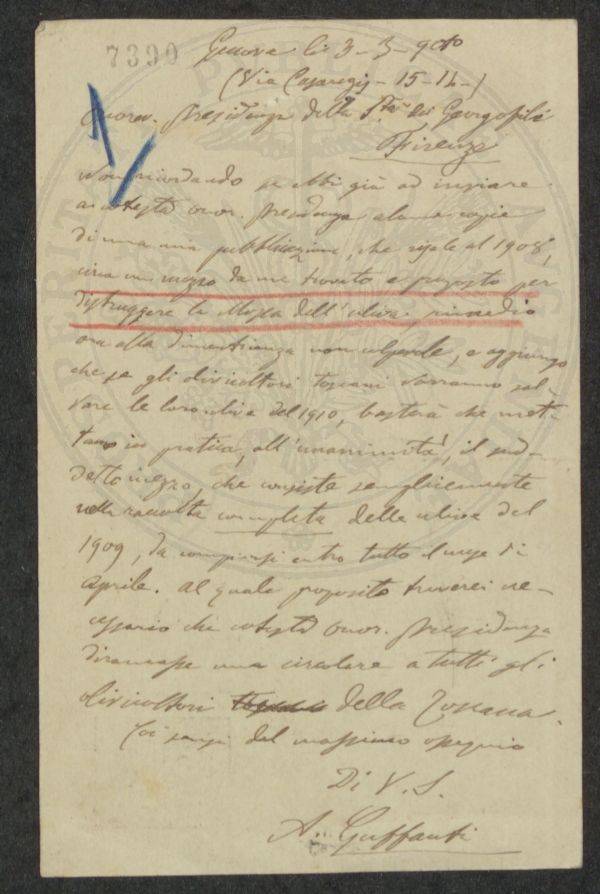 7390
Genova li 3-3-910
(Via Casaregis - 15-14-)
Onor. Presidenza della Rle dei Georgofili
Firenze
Non ricordando se ebbi già ad inviare
a cotesta onor. Presidenza alcune copie
di una mia pubblicazione, che risale al 1908,
circa un mezzo da me trovato e proposto per
distruggere la Mosca dell'uliva, rimedio
ora alla dimenticanza non colpevole, e aggiungo
che se gli olivicoltori toscani vorranno sal-
vare le loro ulive del 1910, basterà che met-
tano in pratica, all'unanimità, il sud-
detto mezzo che consiste semplicemente
nella raccolta completa delle ulive del
1909, da compiersi entro tutto il mese di
aprile. Al quale proposito troverei ne-
cessario che cotesta Onor. Presidenza
diramasse una circolare a tutti gli
olivicoltori della Toscana.
Coi sensi del massimo ossequio
Di V. S.
A. Guffanti